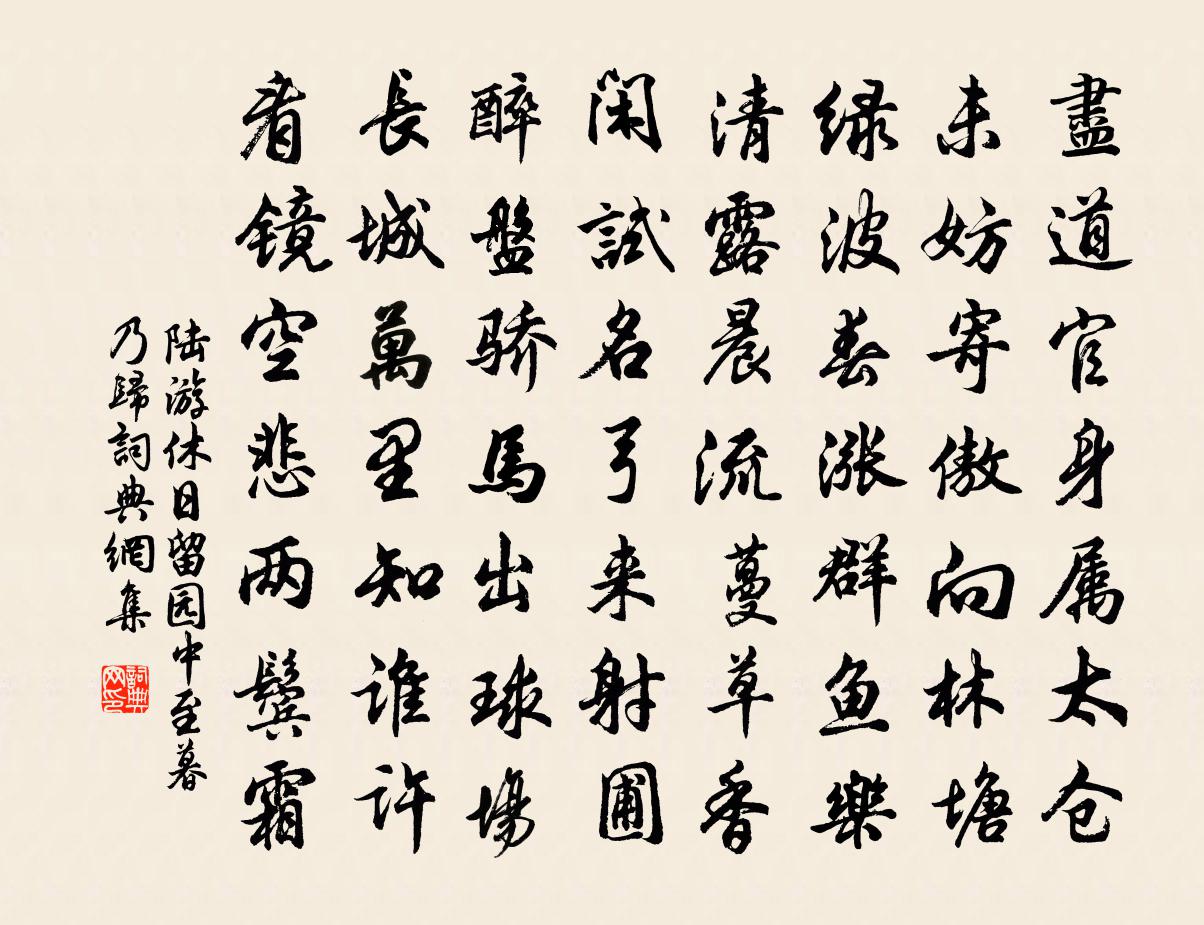 盡道官身属太仓
未妨寄傲向林塘
绿波春漲群鱼樂
清露晨流蔓草香
閑試名弓来射圃
醉盤骄馬出球場
長城萬里知谁许
看镜空悲两鬓霜
陆游休日留园中至暮
乃歸詞典網集
詞典
网印